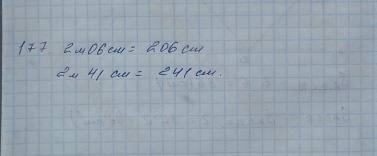 177 2м06см = 206см
2м 41 см = 241 см.